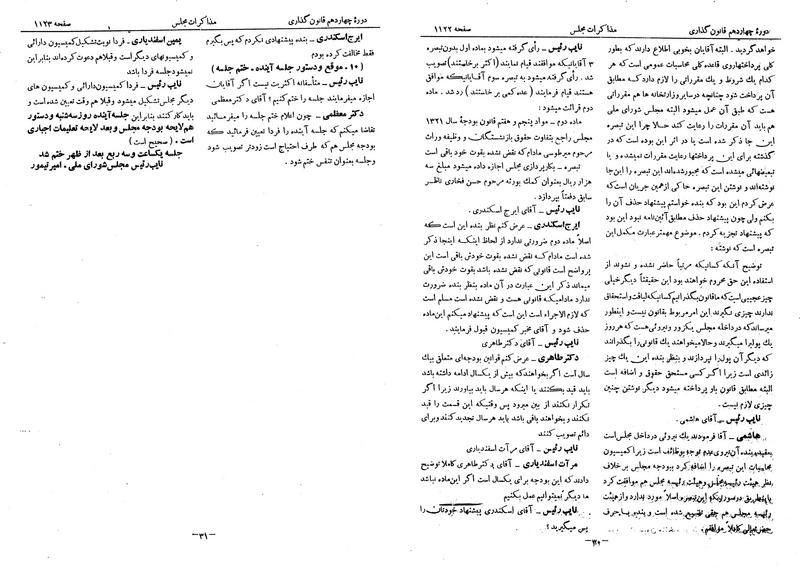 دورهٔ چهاردهم قانون گذاری
مذاکرات مجلس
صفحه ۱۱۲۲
خواهدگردید . البته آقایان بخوبی اطلاع دارند که بطور
کلی پرداختها و قاعده کلی محاسبات عمومی است که هر
کدام یك شروط و یك مقرراتی را لازم دارد که مطابق
آن پرداخت شود چنانچه در سایر وزارتخانه ها هم مقرراتی
هست که طبق آن عمل میشود البته مجلس شورای ملی
هم باید آن مقررات را رعایت کند حالا چرا این تبصره
این جا ذکر شده است یا در اثر این بوده است که در
گذشته برای این پرداختها رعایت مقررات نمیشده و یا
تبعیضهائی میشده است که مجبور شده‌اند این تبصره را این‌جا
نوشته‌اند و نوشتن این تبصره حاکی از همین جریان است که
عرض کردم این بود که بنده خواستم پیشنهاد حذف آن را
بکنم ولی چون پیشنهاد حذف مطابق آئین‌نامه نبود این بود
که پیشنهاد تجزیه کردم . موضوع مهمتر عبارت مکمل این
تبصره است که نوشته :
توضیح آنکه کسانیکه مرتباً حاضر نشده و نشوند از
استفاده این حق محروم خواهند بود این حقیقتاً دیگر خیلی
چیز عجیبی است که ما قانون بگذرانیم کسانیکه لیاقت و استحقاق
ندارند چیزی نگیرند این امر مربوط بقانون نیست و اینطور
میرساند که در داخله مجلس یکزور و نیروئی هست که هر روز
یك پولی را میگیرند و حالا میخواهند یك قانونی را بگذرانند
که دیگر آن پول را نپردازند و بنظر بنده این یك چیز
زائدی است زیرا اگر کسی مستحق حقوق و اضافه است
البته مطابق قانون باو پرداخته میشود دیگر نوشتن چنین
چیزی لازم نیست .
نایب رئیس ــ آقای هاشمی .
هاشمی ــ آقا فرمودند یك نیروئی در داخل مجلس است
نایب رئیس ــ رأی گرفته میشود بماده اول بدون تبصره
۳ آقایانیکه موافقند قیام نمایند (اکثر برخاستند) تصویب
شد . رأی گرفته میشود به تبصره سوم آقایانیکه موافق
هستند قیام فرمایند ( عده کمی برخاستند ) رد شد . ماده
دوم قرائت میشود :
ماده دوم ــ مواد پنجم و هفتم قانون بودجهٔ سال ۱۳۲۱
مجلس راجع بتفاوت حقوق بازنشستگان و وظیفه وراث
مرحوم میرطوسی مادام که نقض نشده بقوت خود باقی است
تبصره ــ بکارپردازی مجلس اجازه داده میشود مبلغ سه
هزار ریال بعنوان کمك بورثه مرحوم حسن فخاری ناظر
سابق دفعتاً بپردازد .
نایب رئیس ــ آقای ایرج اسکندری .
ایرج اسکندری ــ عرض کنم نظر بنده این است که
اصلاً ماده دوم ضرورتی ندارد از لحاظ اینکه اینجا ذکر
شده است مادام که نقض نشده بقوت خودش باقی است این
پرواضح است قانونی که نقض نشده باشد بقوت خودش باقی
میماند ذکر این عبارت در آن ماده بنظر بنده ضرورت
ندارد مادامیکه قانونی هست و نقض نشده است مسلم است
که لازم الاجراء است این است که پیشنهاد میکنم این ماده
حذف شود و آقای مخبر کمیسیون قبول فرمایند .
نایب رئیس ــ آقای دکتر طاهری
دکتر طاهری ــ عرض کنم قوانین بودجه‌ای متعلق بیك
سال است اگر بخواهند که بیش از یکسال ادامه داشته باشد
باید قید بکنند یا اینکه هر سال باید بیاورند زیرا اگر
تکرار نکنند از بین میرود پس وقتیکه این قسمت را قید
نکنند و بخواهند باقی باشد باید هر سال تجدید کنند و برای
دائم تصویب کنند
نایب رئیس ــ آقای مرآت اسفندیاری
مرآت اسفندیاری ــ آقای دکتر طاهری کاملا توضیح
دادند که این بودجه برای یکسال است اگر این ماده نباشد
ما دیگر نمیتوانیم عمل بکنیم
نایب رئیس ــ آقای اسکندری پیشنهاد خودتان را
پس میگیرید ؟
دورهٔ چهاردهم قانون گذاری
مذاکرات مجلس
صفحه ۱۱۲۳
ایرج اسکندری ــ بنده پیشنهادی نکردم که پس بگیرم
فقط مخالفت کرده بودم
( ۱۰ ــ موقع و دستور جلسه آینده ــ ختم جلسه )
نایب رئیس ــ متأسفانه اکثریت نیست اگر آقایان
اجازه میفرمایند جلسه را ختم کنیم ؟ آقای دکتر معظمی
دکتر معظمی ــ چون اعلام ختم جلسه را میفرمائید
تقاضا میکنم که جلسه آینده را فردا تعیین فرمائید که
بودجه مجلس هم که طرف احتیاج است زودتر تصویب شود
و جلسه بعنوان تنفس ختم شود .
یمین اسفندیاری ــ فردا نوبت تشکیل کمیسیون دارائی
و کمیسیونهای دیگر است و قبلا هم دعوت کرده‌اند بنابراین
نمیشود جلسه فردا باشد
نایب رئیس ــ فردا کمیسیون دارائی و کمیسیون های
دیگر مجلس تشکیل میشود و قبلا هم وقت تعیین شده است و
باید کار کنند بنابراین جلسه آینده روز سه‌شنبه و دستور
هم لایحه بودجه مجلس و بعد لایحه تعلیمات اجباری
است . ( صحیح است )
جلسه یکساعت و سه ربع بعد از ظهر ختم شد
نایب رئیس مجلس شورای ملی ــ امیر تیمور
ــ ۳۱ ــ